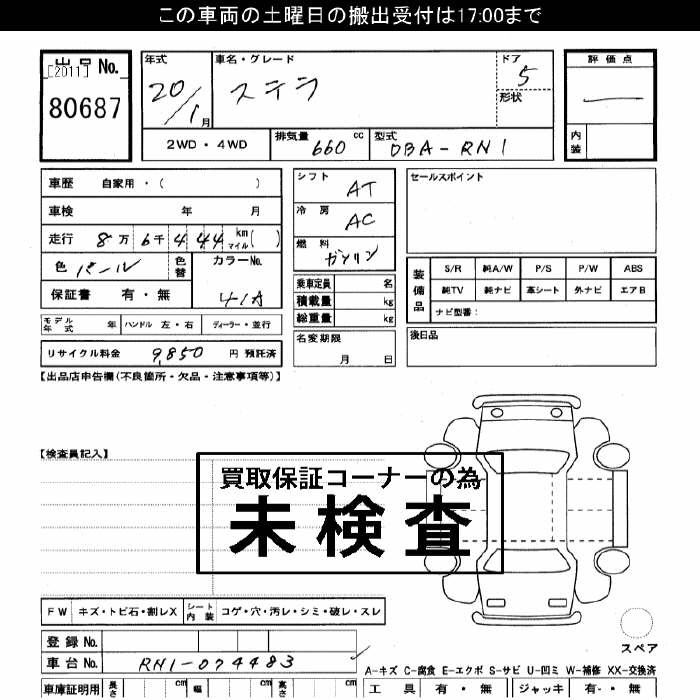 この車両の土曜日の搬出受付は17:00まで
出品 No.
[2011]
80687
年式
20/1月
車名・グレード
ステラ
ドア
5
形状
評価点
内装
2WD・4WD
排気量 660 cc
型式 DBA-RN1
車歴 自家用・( )
車検 年 月
走行 8万 6千 444 km マイル ( )
色 パール
色替
カラーNo.
41A
保証書 有・無
モデル年式 年 ハンドル 左・右 ディーラー・並行
リサイクル料金 9,850 円 預託済
シフト AT
冷房 AC
燃料 ガソリン
乗車定員 名
積載量 kg
総重量 kg
名変期限
月 日
セールスポイント
装備品
S/R 純A/W P/S P/W ABS
純TV 純ナビ 革シート 外ナビ エアB
ナビ型番:
後日品
【出品店申告欄(不良箇所・欠品・注意事項等)】
【検査員記入】
買取保証コーナーの為
未検査
FW キズ・トビ石・割レX シート内装 コゲ・穴・汚レ・シミ・破レ・スレ
登録No.
車台No. RN1-074483
スペア
A-キズ C-腐食 E-エクボ S-サビ U-凹ミ W-補修 XX-交換済
車庫証明用 長さ cm 幅 cm 高さ cm
工具 有・無 ジャッキ 有・無